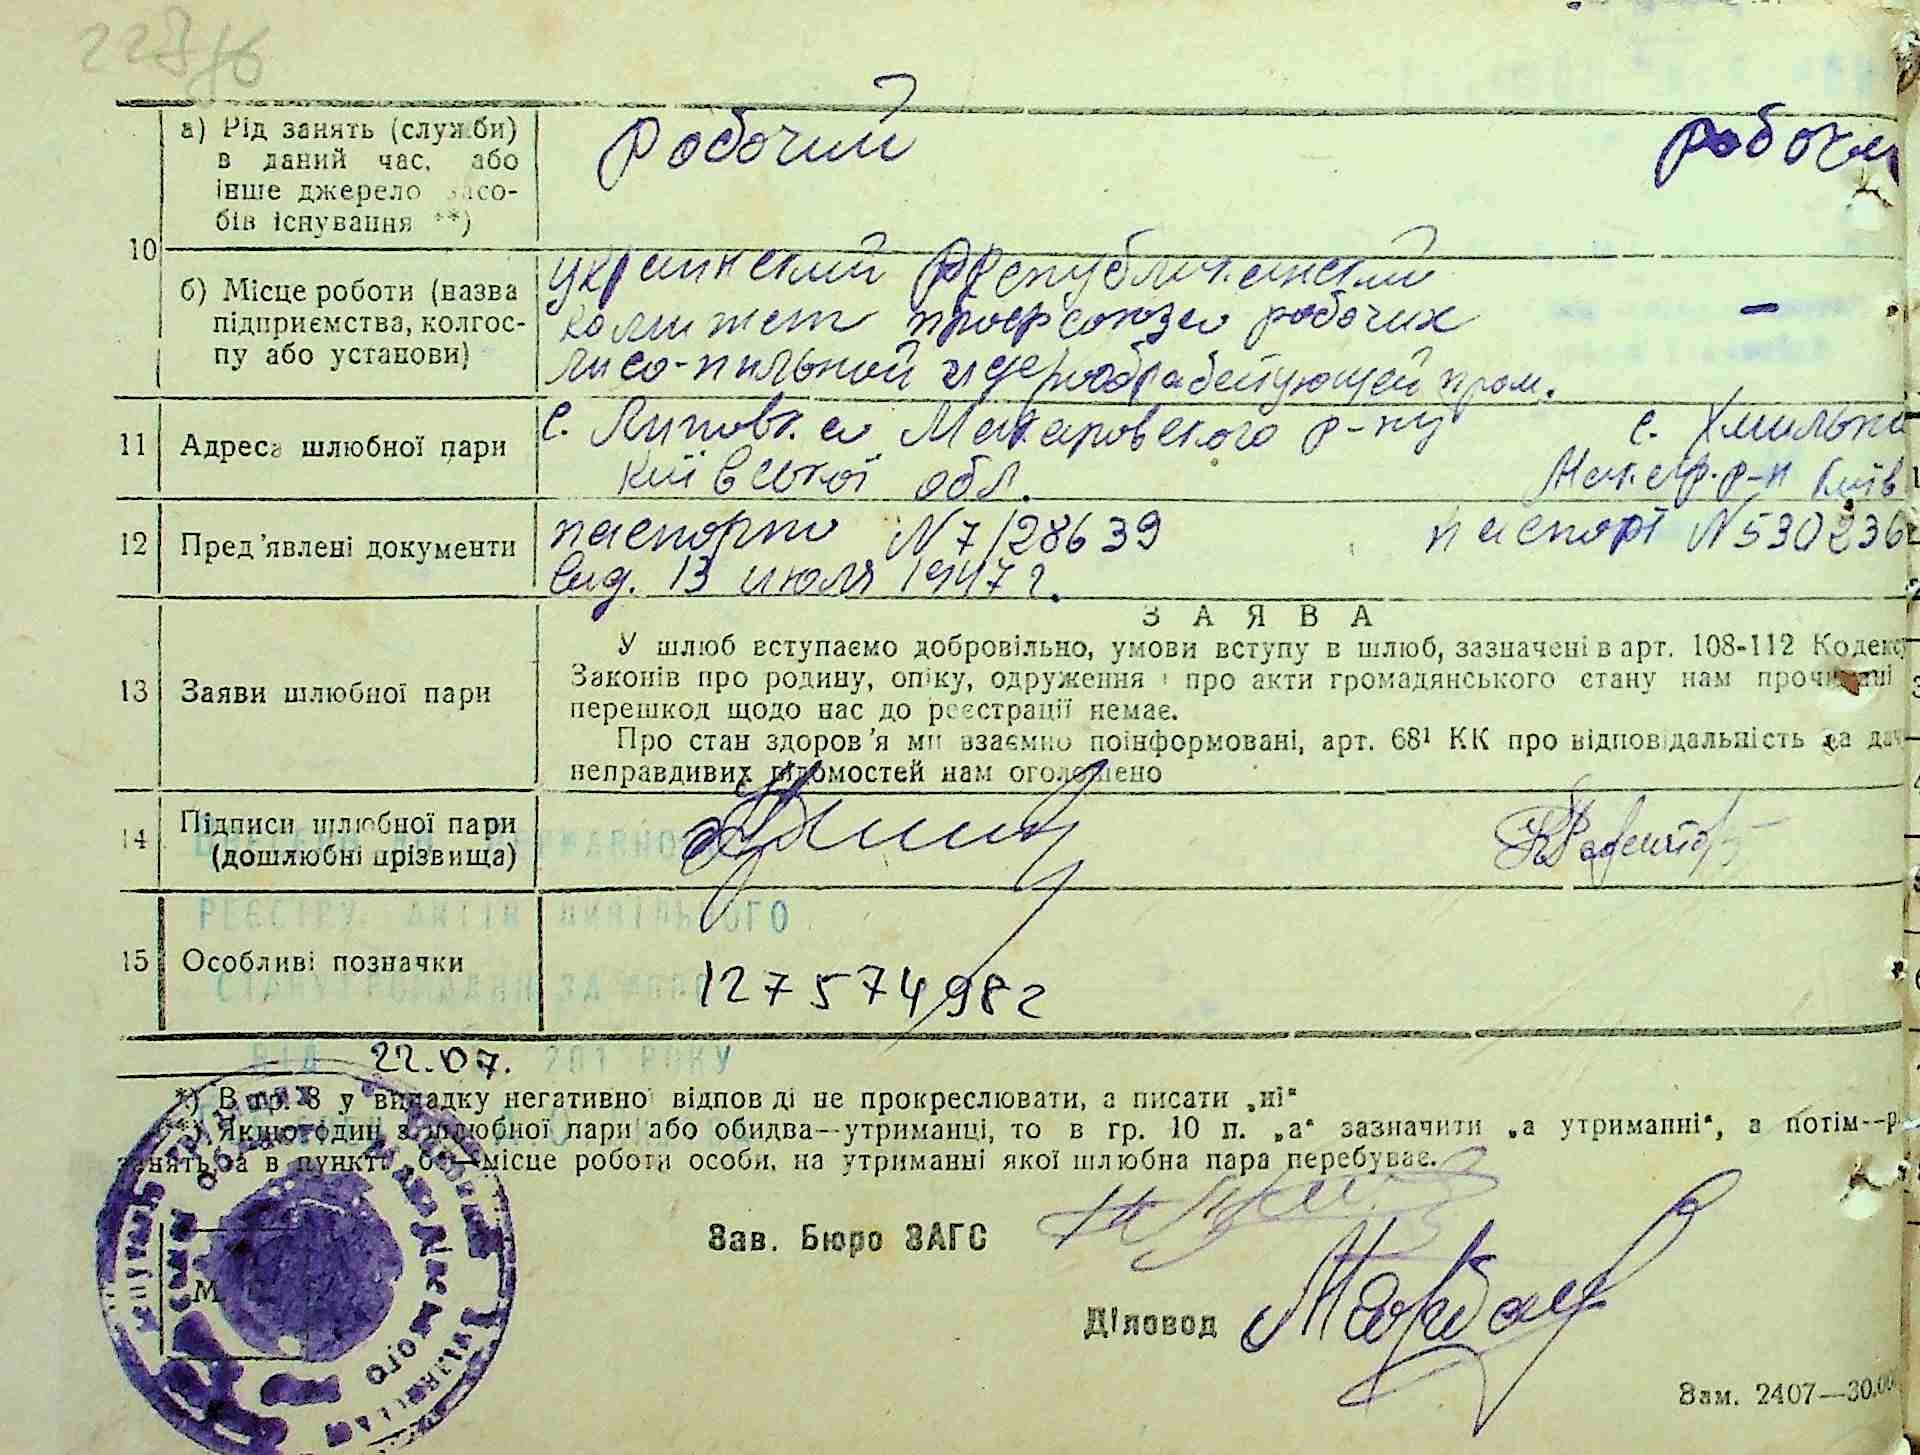 а) Рід занять (служби)
в даний час, або
інше джерело засо-
бів існування **)
робочий
робочи
10
б) Місце роботи (назва
підприємства, колгос-
пу або установи)
украинский республиканский
комитет профсоюза рабочих
лисо-пильной и дерообрабатующей пром.
–
11 Адреса шлюбної пари
с. Липовка Макаровского р-ну
Київської обл.
с. Хмильна
Макар. р-н Київ
12 Пред'явлені документи
паспорт N 7/28639
вид. 13 июля 1947 г.
паспорт N 530236
13 Заяви шлюбної пари
ЗАЯВА
У шлюб вступаємо добровільно, умови вступу в шлюб, зазначені в арт. 108-112 Кодексу
Законів про родину, опіку, одруження і про акти громадянського стану нам прочитані
перешкод щодо нас до реєстрації немає.
Про стан здоров'я ми взаємно поінформовані, арт. 68¹ КК про відповідальність за дач
неправдивих відомостей нам оголошено
14 Підписи шлюбної пари
(дошлюбні прізвища)
РЕЄСТРУ АКТІВ ЦИВІЛЬНОГО
15 Особливі позначки
СТАНУ ГРОМАДЯН ЗА
12757498г
ВІД 22.07. 201 РОКУ
*) В гр. 8 у випадку негативної відповіді не прокреслювати, а писати „ні“
**) Якщо один з шлюбної пари або обидва—утриманці, то в гр. 10 п. „а“ зазначити „а утриманні“, а потім—р
занять, а в пункті „б“—місце роботи особи, на утриманні якої шлюбна пара перебуває.
Зав. Бюро ЗАГС
М
Діловод
Зам. 2407—30.00